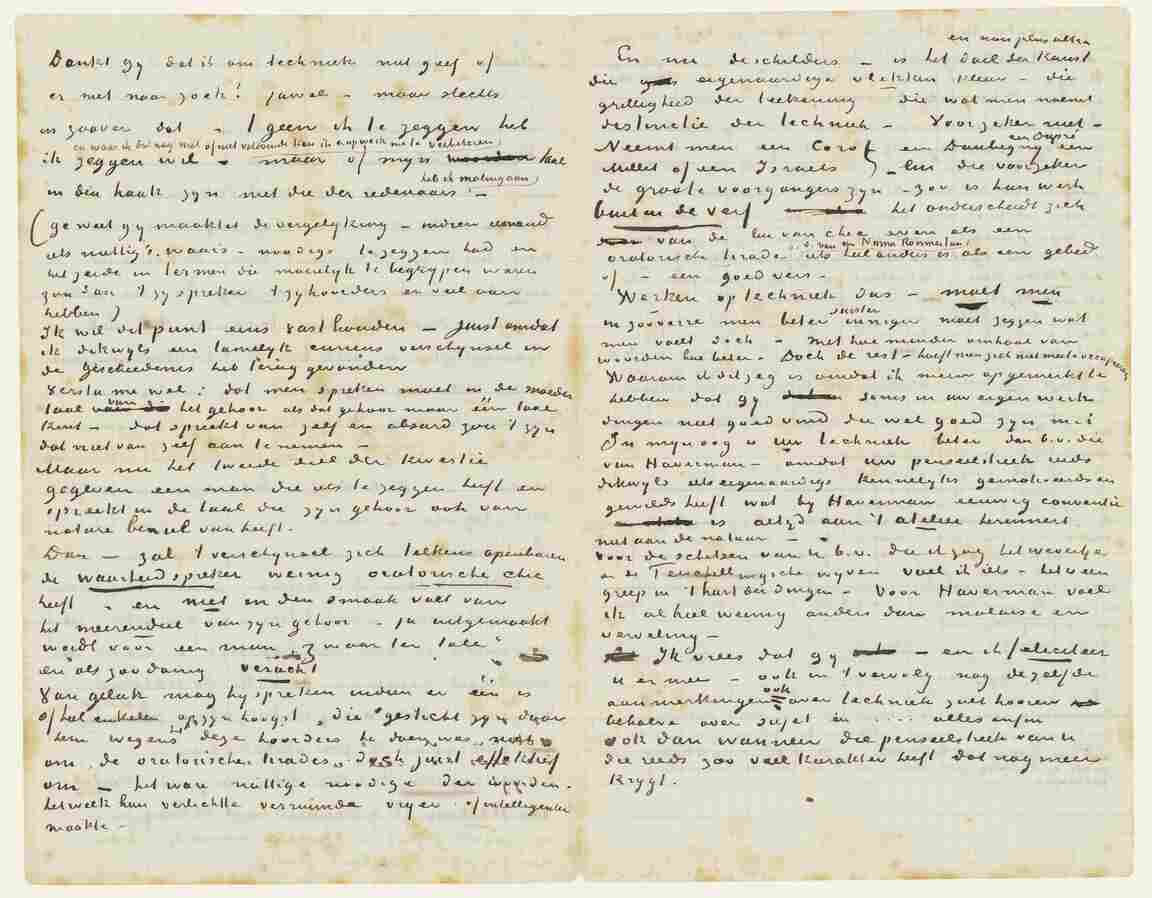 Denkt gy dat ik om techniek niet geef of
er niet naar zoek? jawel – maar slechts
in zoover dat – 't geen ik te zeggen heb
en waar ik dat nog niet of niet voldoende kan ik er op werk me te verbeteren,
ik zeggen wil – maar of myn taal
heb ik maling aan)
in den haak zyn met die der redenaars –
(ge weet gy maaktet de vergelyking – indien iemand
iets nuttigs, waars – noodigs te zeggen had en
het zeide in termen die moeielyk te begrypen waren
zou dan 't zy spreker 't zy hoorders er veel aan
hebben)
Ik wil dit punt eens vast houden – juist omdat
ik dikwyls een tamelyk curieus verschynsel in
de geschiedenis heb terug gevonden
Versta me wel: dat men spreken moet in de moeder
taal van het gehoor als dat gehoor maar één taal
kent – dat spreekt van zelf en absurd zou 't zyn
dat niet van zelf aan te nemen –
Maar nu het tweede deel der kwestie
gegeven een man die iets te zeggen heeft en
spreekt in de taal die zyn gehoor ook van
nature kent.
Dan – zal 't verschynsel zich telkens openbaren
de waarheidspreker weinig oratorische chic
heeft – en niet in den smaak valt van
het meerendeel van zyn gehoor – ja uitgemaakt
wordt voor een man "zwaar ter tale"
en als zoodanig veracht
Van geluk mag hy spreken indien er één is
of het enkelen op zyn hoogst, die gesticht zyn door
hem wegens het deze hoorders te doen was niet
om de oratorische tirades – doch juist effektief
om – het ware nuttige noodige der woorden.
hetwelk hun verlichtte verruimde vryer of intelligenter
maakte –
en non plus ultra
En nu de schilders – is het doel der kunst
die eigenaardige vlekken kleur – die
grilligheid der teekening – die wat men noemt
distinctie der techniek – Voorzeker niet –
en Dupré
Neemt men een Corot een Daubigny een
Millet of een Israels – lui die voorzeker
de groote voorgangers zyn – zoo is hun werk
buiten de verf het onderscheidt zich
van de lui van chic even als een
van een Numa Roumestan)
oratorische tirade iets heel anders is als een gebed
of – een goed vers.
Werken op techniek dus – moet men
juister
in zooverre men beter inniger moet zeggen wat
men voelt doch – met hoe minder omhaal van
woorden hoe beter. Doch de rest – hoeft men zich niet mede occuperen
Waarom ik dit zeg is omdat ik meen opgemerkt te
hebben dat gy soms in uw eigen werk
dingen niet goed vind die wel goed zyn m.i.
In myn oog is uw techniek beter dan b.v. die
van Haverman – omdat uw penseelstreek reeds
dikwyls iets eigenaardigs kennelyks gemotiveerds en
gewilds heeft wat by Haverman eeuwig conventie
is altyd aan 't atelier herinnert
niet aan de natuur –
Voor de schetsen van u b.v. die ik zag het wevertje
en de Terschellingsche wyven voel ik iets – het is een
greep in 't hart der dingen – Voor Haverman voel
ik al heel weinig anders dan malaise en
verveling –
Ik vrees dat gy – en ik feliciteer
u er mee – ook in 't vervolg nog dezelfde
aanmerkingen ook over techniek zult hooren
behalve over sujet en .... alles enfin
ook dan wanneer die penseelstreek van u
die reeds zoo veel karakter heeft dat nog meer
krygt.